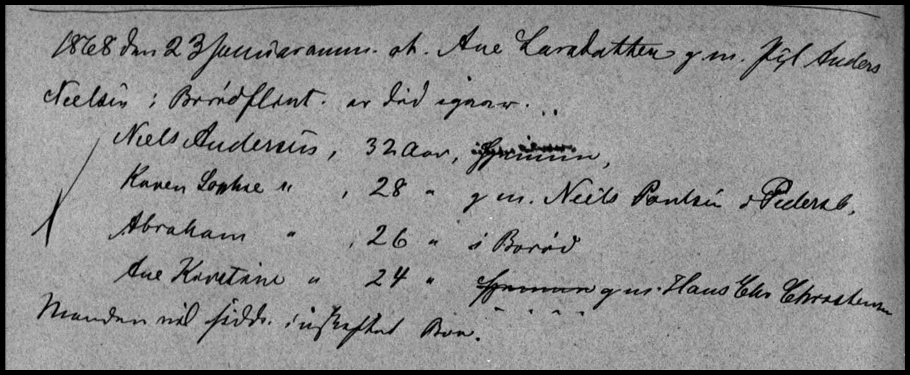 1868 den 23 Januar anm. at. Ane Larsdatter g m. Anders
Nielsen i er død igaar.
Niels Andersen, 32 Aar, hjemme,
Karen Sophie " , 28 " g m. Niels Poulsen i Pedersb.
Abraham " , 26 " i Borød
Ane Kirstine " 24 " hjemme g m. Hans Chr Christensen
Manden vil sidde i uskiftet Boe.